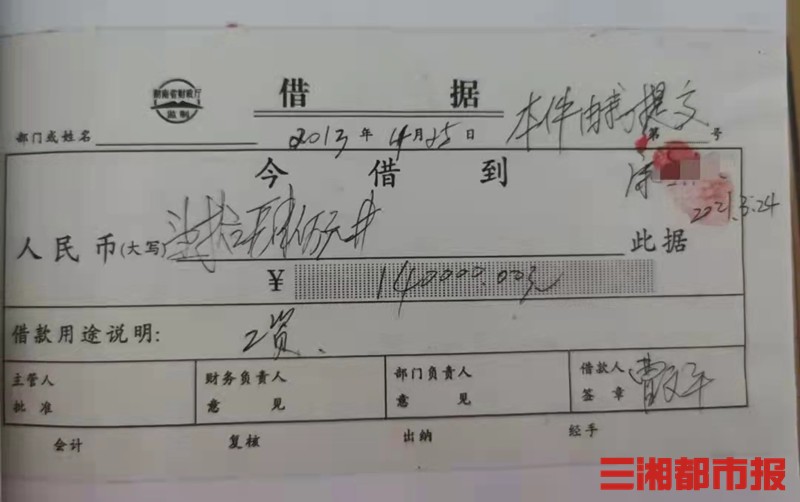 湖南省财政厅
监制
借 据
本件由我提交
部门或姓名 2013年4月25日 第 号
今借到
2021.3.24
人民币(大写) 壹拾肆万元 此据
¥ 140000.00元
借款用途说明: 工资.
主管人 财务负责人 部门负责人 借款人
批准 意见 意见 签章 曹文平
会计 复核 出纳 经手
三湘都市报